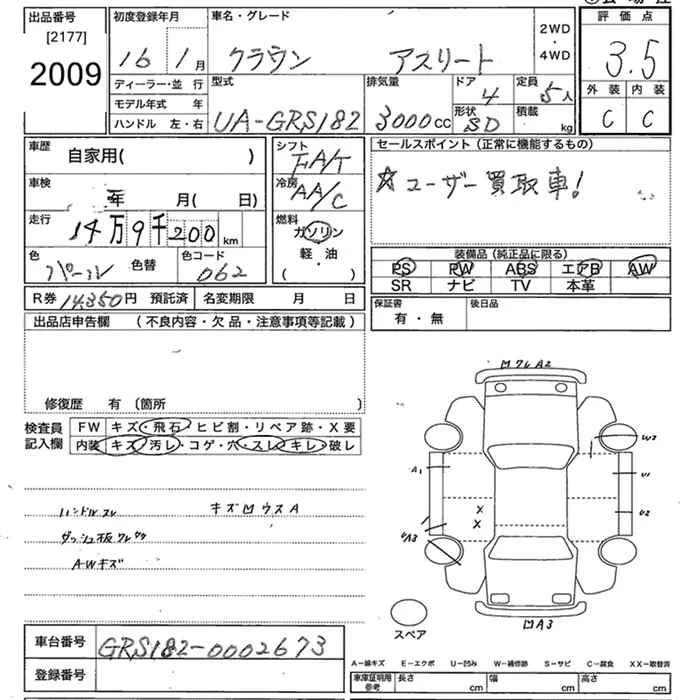 出品番号
[2177]
2009
初度登録年月
16 1月
車名・グレード
クラウン アスリート
2WD
・
4WD
評価点
3.5
外装 内装
C C
ディーラー・並 行
モデル年式 年
ハンドル 左・右
型式
UA-GRS182
排気量
3000cc
ドア
4
形状
SD
定員
5人
積載
kg
車歴
自家用( )
車検
年 月( 日)
走行
14万9千200km
色
パール
色替
色コード
062
シフト
FA/T
冷房
AA/C
燃料
ガソリン
軽・油
( )
セールスポイント(正常に機能するもの)
☆ユーザー買取車!
装備品(純正品に限る)
PS PW ABS エアB AW
SR ナビ TV 本革
R券 14,350円 預託済 名変期限 月 日
保証書
有・無
後日品
出品店申告欄 (不良内容・欠品・注意事項等記載)
修復歴 有(箇所 )
検査員
記入欄
FW キズ・飛石・ヒビ割・リペア跡・X要
内装 キズ・汚レ・コゲ・穴・スレ・キレ・破レ
ハンドルスレ
キズMウスA
AWキズ
A1
W2
U1
U2
X
X
MA3
スペア
車台番号
GRS182-0002673
登録番号
A－線キズ E－エクボ U－凹み W－補修跡 S－サビ C－腐食 XX－取替済
車庫証明用
参考
長さ cm 幅 cm 高さ cm